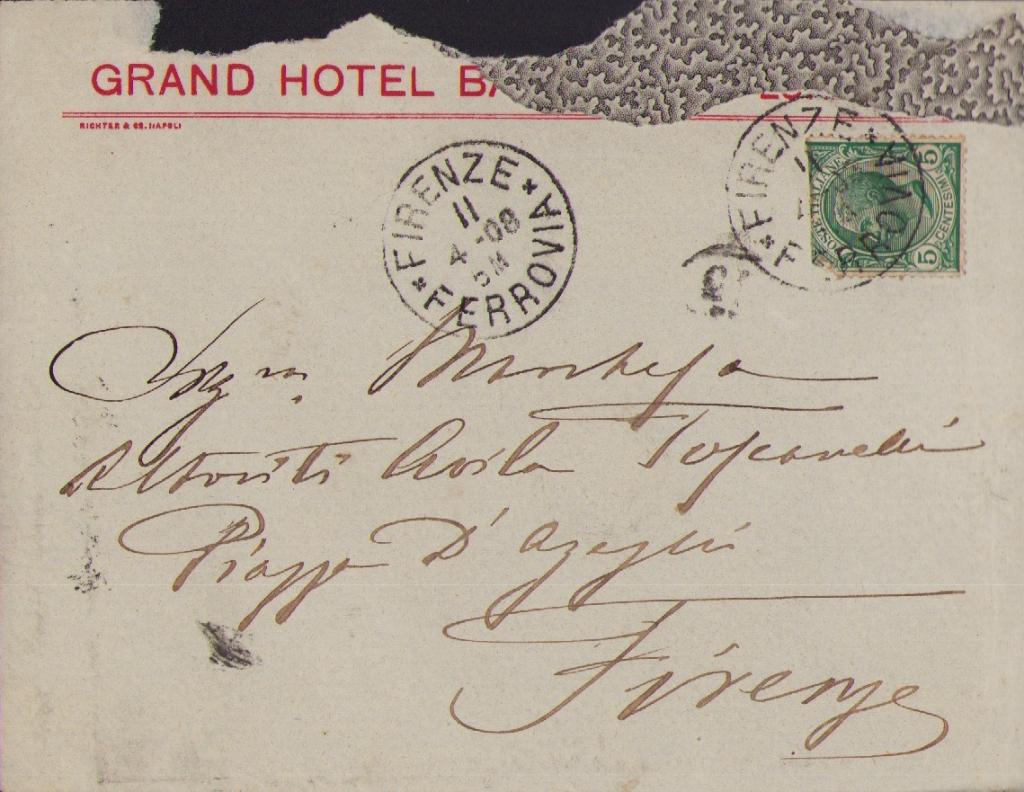 GRAND HOTEL BA
RICHTER & Co. NAPOLI
FIRENZE
11
4-08
5M
FERROVIA
FIRENZE
FERROVIA
POSTE ITALIANE
CENTESIMI
5
5
Altoviti Avila Toscanelli
Piazza D'Azeglio
Firenze